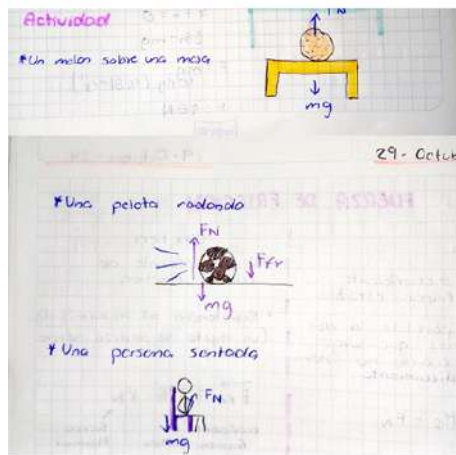 Actividad
FN
*Un melon sobre una mesa
mg
29-Octub
*Una pelota rodando
FN
Ffr
mg
*Una persona sentada
FN
mg